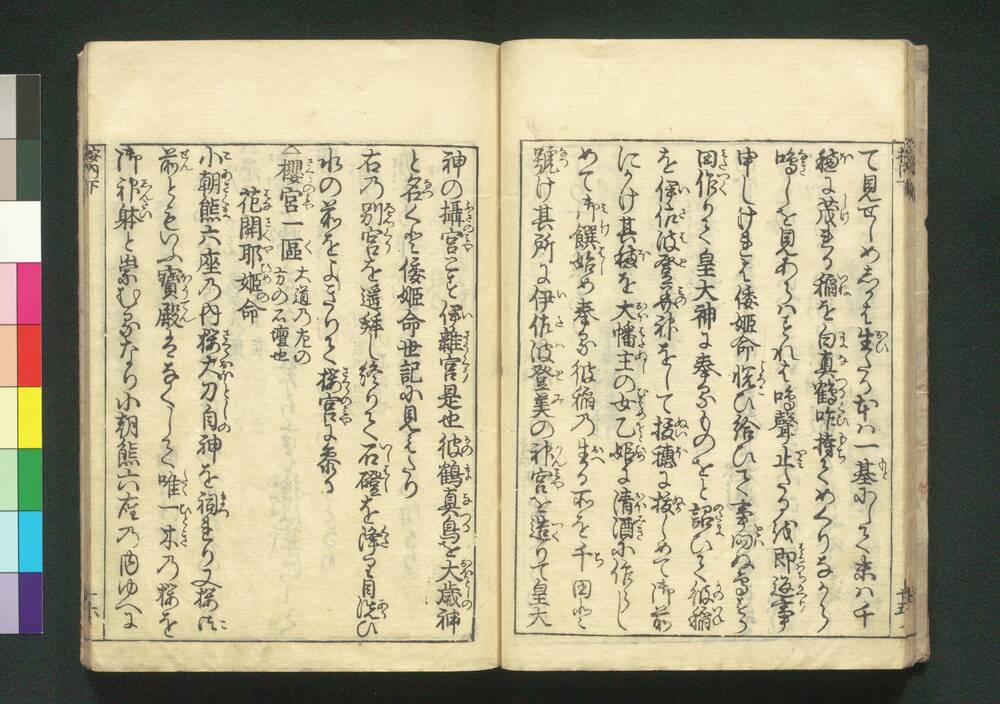 て見せしめしかは生たる本は一基にして末は千
穂に茂れる稲を白真鶴咋持てめくりなから
鳴しを見あらはすれは鳴聲止たる状即返事
申しけれは倭姫命悦ひ給ひて事問ぬ鳥すら
田作りて皇大神に奉るものをと詔ひて彼稲
を伊佐波登美神をして抜穂に抜しめて御前
にかけ其穂を大幡主の女乙姫に清酒に作らし
めて御饌始め奉る彼稲の生る所を千田と
號け其所に伊佐波登美の神宮を造りて皇大
神の攝宮とす伊雜宮是也彼鶴真鳥を大歳神
と名くと倭姫命世記に見えたり
右乃別宮を遥拝し終りて石磴を降り目洗ひ
水の前をよきりて桜宮に参る
櫻宮一區 大道乃左の方の石壇也
花開耶姫命
小朝熊六座乃内桜大刀自神を祠れり又桜御
前ともいふ寳殿はなくして唯一木乃桜を
御神躰と崇むるなり小朝熊六座乃内ゆへに
案内下
十六